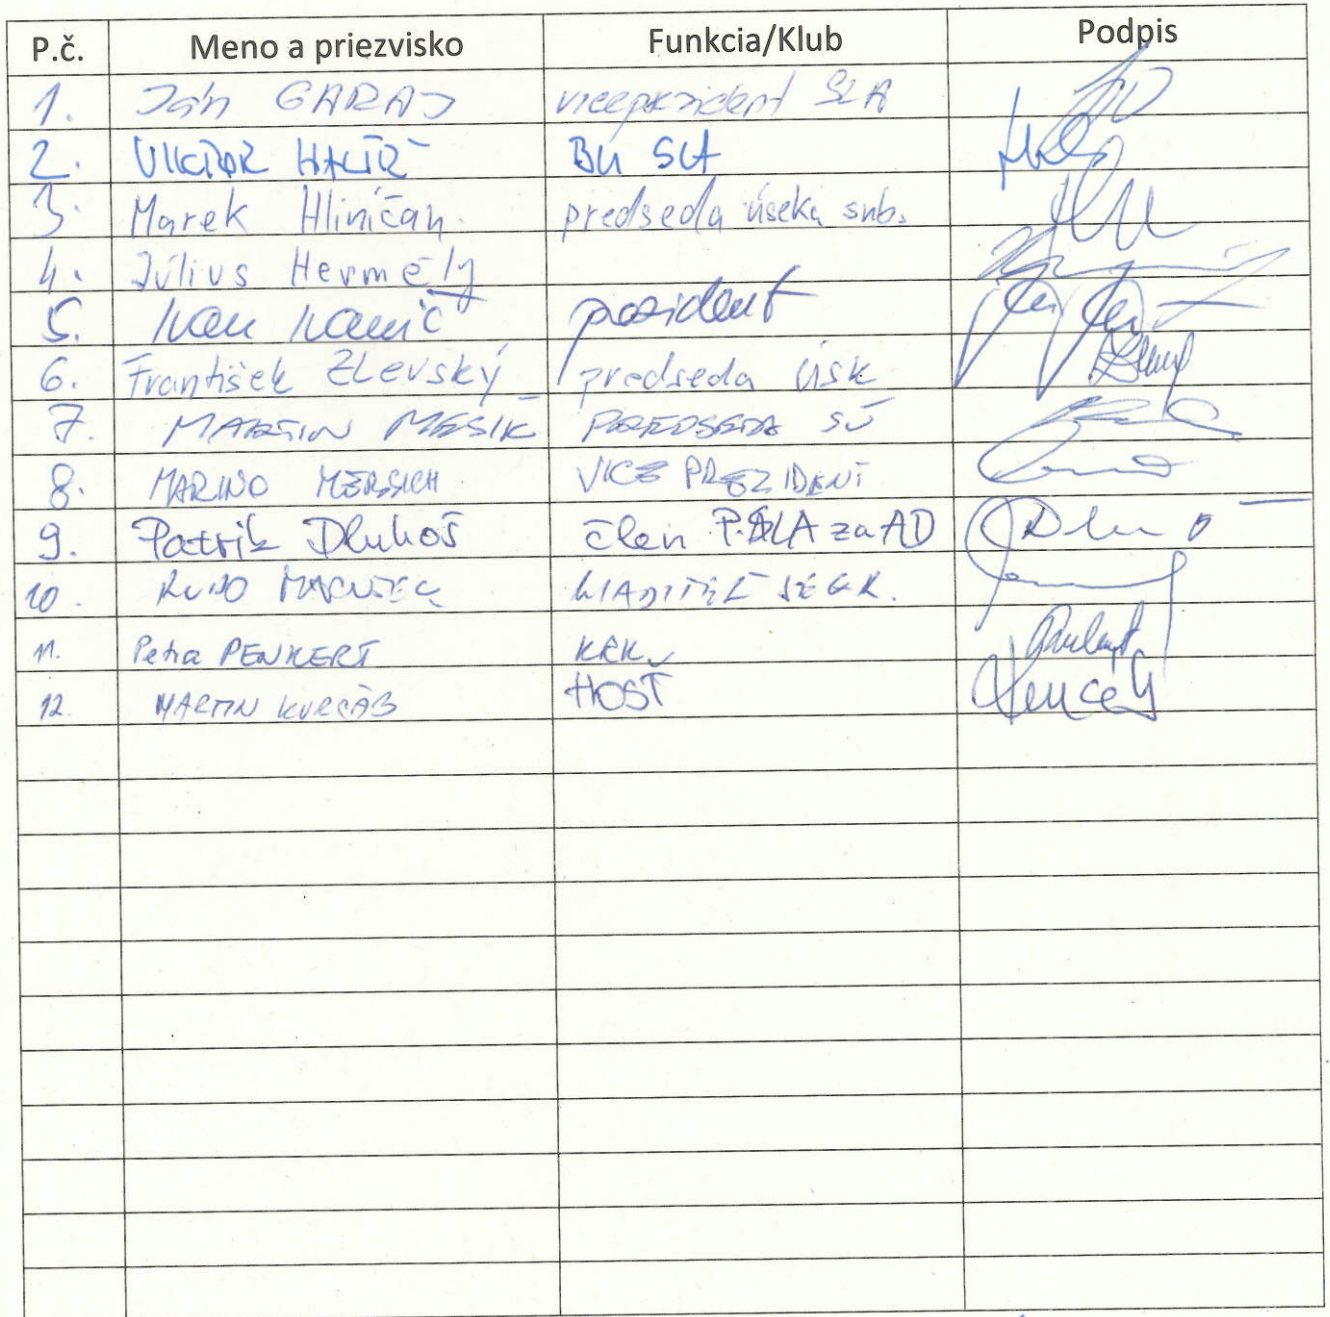 P.č. Meno a priezvisko Funkcia/Klub Podpis
1. Ján GARAJ viceprezident SLA
2. VIKTOR HALÍŘ BÚ SLA
3. Marek Hliničan predseda úseku snb.
4. Július Hermély
5. Ivan Ivanič prezident
6. František Zlevský predseda ÚSK
7. MARTIN MESIK PREDSEDA SÚ
8. MARINO MERSICH VICE PREZIDENT
9. Patrik Dluhoš člen P.SLA za AD
10. RUDO RIADITEĽ SEKR.
11. Petra PENKERT KRK
12. MARTIN KURCÁB HOSŤ